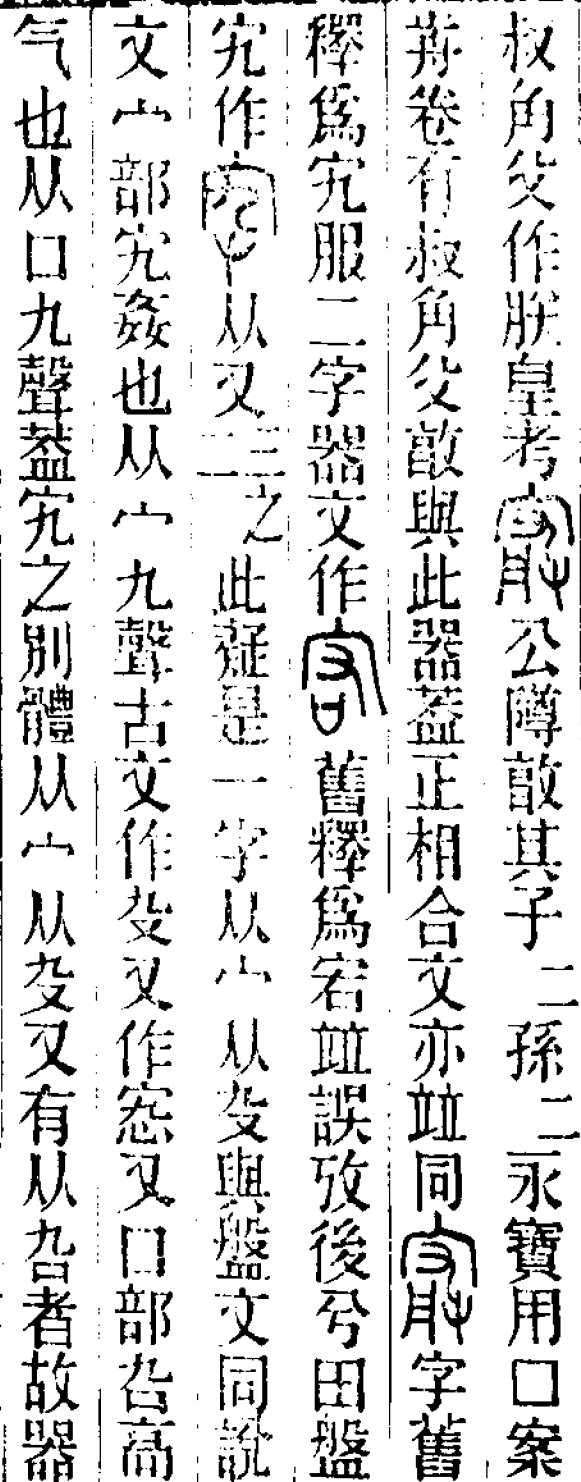 叔角父作朕皇考公障敢其子二孫二永寶用口案
卷有叔角父敢與此器葢正相合文亦竝同字舊
釋爲宄服二字器文作舊釋爲宕竝誤攷後兮田盤
宄作从又二三之此疑是一字从宀从殳與盤文同說
文宀部宄姦也从宀九聲古文作殳又作𡧪又口部叴高
气也从口九聲葢宄之別體从宀从殳又有从叴者故器